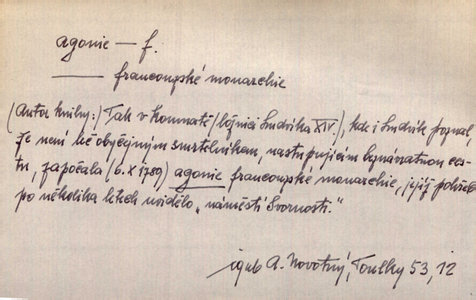 agonie — f.
—— francouzské monarchie
(Autor knihy:) Tak v komnatě /ložnici Ludvíka XIV./, kde i Ludvík poznal,
že není než obyčejným smrtelníkem, nastupujícím beznávratnou ces-
tu, započala (6.X 1789) agonie francouzské monarchie, jejíž pohřeb
po několika letech uvidělo „náměstí Svornosti."
A. Novotný, Toulky 53, 12